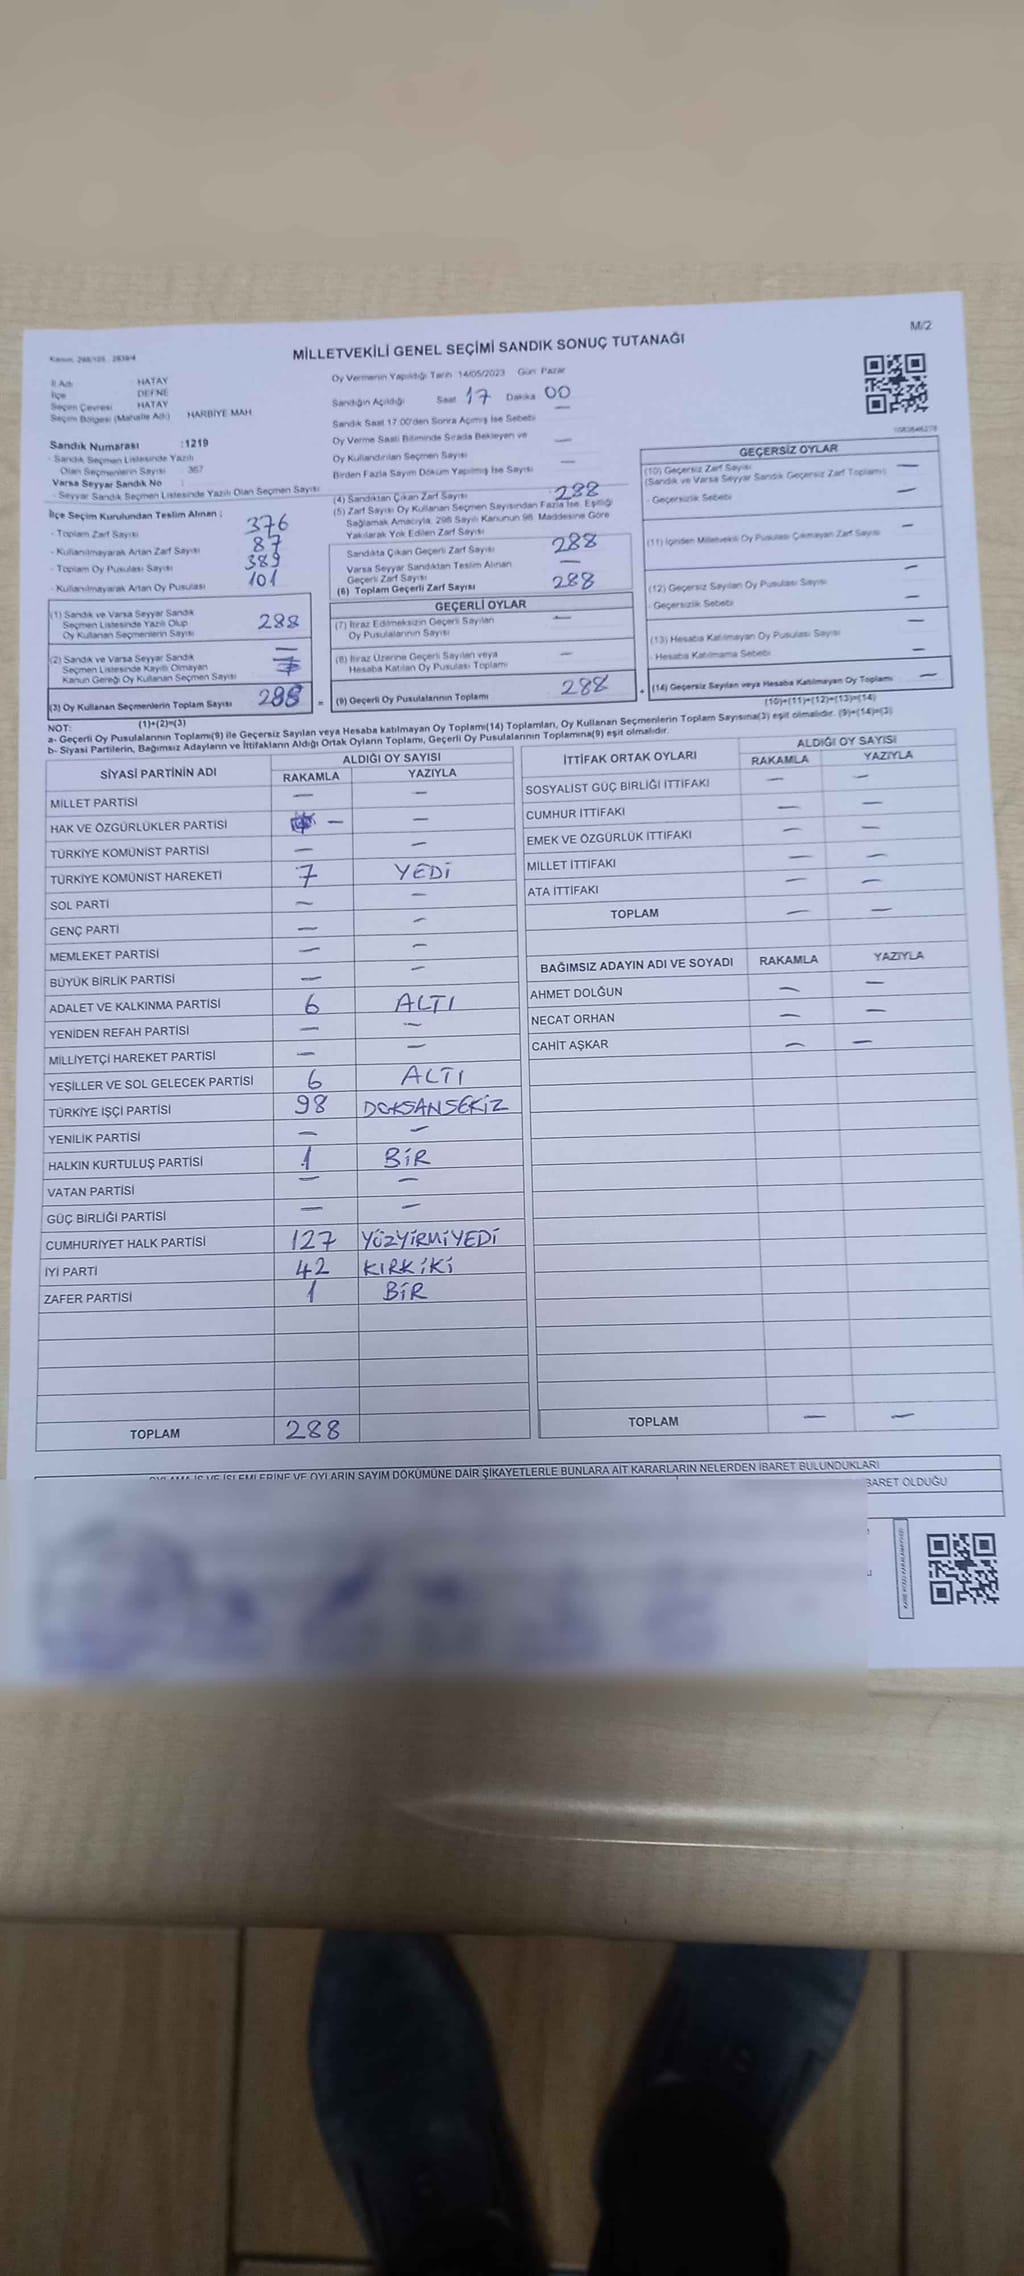 M/2
Kanun: 298/105 - 2839/4
MİLLETVEKİLİ GENEL SEÇİMİ SANDIK SONUÇ TUTANAĞI
İl Adı : HATAY
İlçe : DEFNE
Seçim Çevresi : HATAY
Seçim Bölgesi (Mahalle Adı) HARBİYE MAH
Sandık Numarası :1219
- Sandık Seçmen Listesinde Yazılı
Olan Seçmenlerin Sayısı 367
Varsa Seyyar Sandık No :
- Seyyar Sandık Seçmen Listesinde Yazılı Olan Seçmen Sayısı
İlçe Seçim Kurulundan Teslim Alınan :
- Toplam Zarf Sayısı 376
- Kullanılmayarak Artan Zarf Sayısı 87
- Toplam Oy Pusulası Sayısı 389
- Kullanılmayarak Artan Oy Pusulası 101
(1) Sandık ve Varsa Seyyar Sandık
Seçmen Listesinde Yazılı Olup
Oy Kullanan Seçmenlerin Sayısı 288
(2) Sandık ve Varsa Seyyar Sandık
Seçmen Listesinde Kayıtlı Olmayan
Kanun Gereği Oy Kullanan Seçmen Sayısı —
(3) Oy Kullanan Seçmenlerin Toplam Sayısı 288 =
(1)+(2)=(3)
Oy Vermenin Yapıldığı Tarih 14/05/2023 Gün Pazar
Sandığın Açıldığı Saat 17 Dakika 00
Sandık Saat 17.00'den Sonra Açılmış İse Sebebi —
Oy Verme Saati Bitiminde Sırada Bekleyen ve
Oy Kullandırılan Seçmen Sayısı —
Birden Fazla Sayım Döküm Yapılmış İse Sayısı —
(4) Sandıktan Çıkan Zarf Sayısı 288
(5) Zarf Sayısı Oy Kullanan Seçmen Sayısından Fazla İse, Eşitliği
Sağlamak Amacıyla, 298 Sayılı Kanunun 98. Maddesine Göre
Yakılarak Yok Edilen Zarf Sayısı —
Sandıkta Çıkan Geçerli Zarf Sayısı 288
Varsa Seyyar Sandıktan Teslim Alınan
Geçerli Zarf Sayısı —
(6) Toplam Geçerli Zarf Sayısı 288
GEÇERLİ OYLAR
(7) İtiraz Edilmeksizin Geçerli Sayılan
Oy Pusulalarının Sayısı —
(8) İtiraz Üzerine Geçerli Sayılan veya
Hesaba Katılan Oy Pusulası Toplamı —
(9) Geçerli Oy Pusulalarının Toplamı 288 +
GEÇERSİZ OYLAR
(10) Geçersiz Zarf Sayısı —
(Sandık ve Varsa Seyyar Sandık Geçersiz Zarf Toplamı)
- Geçersizlik Sebebi —
(11) İçinden Milletvekili Oy Pusulası Çıkmayan Zarf Sayısı —
(12) Geçersiz Sayılan Oy Pusulası Sayısı —
- Geçersizlik Sebebi —
(13) Hesaba Katılmayan Oy Pusulası Sayısı —
- Hesaba Katılmama Sebebi —
(14) Geçersiz Sayılan veya Hesaba Katılmayan Oy Toplamı —
(10)+(11)+(12)+(13)=(14)
NOT:
a- Geçerli Oy Pusulalarının Toplamı(9) ile Geçersiz Sayılan veya Hesaba katılmayan Oy Toplamı(14) Toplamları, Oy Kullanan Seçmenlerin Toplam Sayısına(3) eşit olmalıdır. (9)+(14)=(3)
b- Siyasi Partilerin, Bağımsız Adayların ve İttifakların Aldığı Ortak Oyların Toplamı, Geçerli Oy Pusulalarının Toplamına(9) eşit olmalıdır.
SİYASİ PARTİNİN ADI ALDIĞI OY SAYISI
RAKAMLA YAZIYLA
MİLLET PARTİSİ — —
HAK VE ÖZGÜRLÜKLER PARTİSİ — —
TÜRKİYE KOMÜNİST PARTİSİ — —
TÜRKİYE KOMÜNİST HAREKETİ 7 YEDİ
SOL PARTİ — —
GENÇ PARTİ — —
MEMLEKET PARTİSİ — —
BÜYÜK BİRLİK PARTİSİ — —
ADALET VE KALKINMA PARTİSİ 6 ALTI
YENİDEN REFAH PARTİSİ — —
MİLLİYETÇİ HAREKET PARTİSİ — —
YEŞİLLER VE SOL GELECEK PARTİSİ 6 ALTI
TÜRKİYE İŞÇİ PARTİSİ 98 DOKSANSEKİZ
YENİLİK PARTİSİ — —
HALKIN KURTULUŞ PARTİSİ 1 BİR
VATAN PARTİSİ — —
GÜÇ BİRLİĞİ PARTİSİ — —
CUMHURİYET HALK PARTİSİ 127 YÜZYİRMİYEDİ
İYİ PARTİ 42 KIRKİKİ
ZAFER PARTİSİ 1 BİR
TOPLAM 288
İTTİFAK ORTAK OYLARI ALDIĞI OY SAYISI
RAKAMLA YAZIYLA
SOSYALİST GÜÇ BİRLİĞİ İTTİFAKI — —
CUMHUR İTTİFAKI — —
EMEK VE ÖZGÜRLÜK İTTİFAKI — —
MİLLET İTTİFAKI — —
ATA İTTİFAKI — —
TOPLAM — —
BAĞIMSIZ ADAYIN ADI VE SOYADI RAKAMLA YAZIYLA
AHMET DOLĞUN — —
NECAT ORHAN — —
CAHİT AŞKAR — —
TOPLAM — —
OYLAMA İŞ VE İŞLEMLERİNE VE OYLARIN SAYIM DÖKÜMÜNE DAİR ŞİKAYETLERLE BUNLARA AİT KARARLARIN NELERDEN İBARET BULUNDUKLARI
OLDUĞU